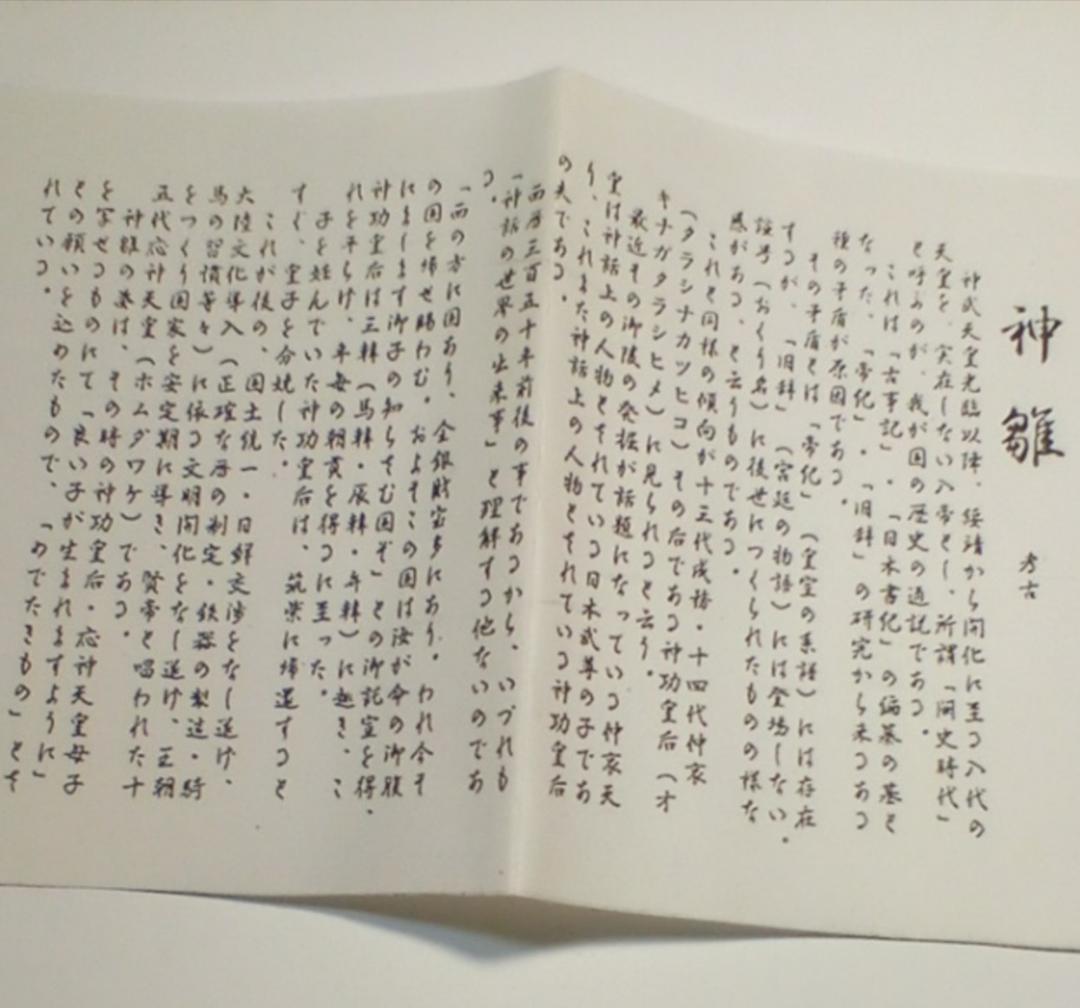 神雛
考古
神武天皇光臨以降、綏靖から開化に至る八代の
天皇を、実在しない入帝とし、所謂「闕史時代」
と呼ぶのが、我が国の歴史の通説である。
これは「古事記」・「日本書紀」の編纂の基と
なった、「帝紀」・「旧辞」の研究から来るある
種の矛盾が原因である。
その矛盾とは「帝紀」(皇室の系譜)には存在
するが、「旧辞」(宮廷の物語)には登場しない。
諡号(おくり名)に後世につくられたものの様な
感がある、と云うものである。
これと同様の傾向が十三代成務・十四代仲哀
(タラシナカツヒコ)その后である神功皇后(オ
キナガタラシヒメ)に見られると云う。
最近その御陵の発掘が話題になっている仲哀天
皇は神話上の人物とされている日本武尊の子であ
り、これまた神話上の人物とされている神功皇后
の夫である。
西暦三百五十年前後の事であるから、いづれも
「神話の世界の出来事」と理解する他ないのであ
る。
「西の方に国あり、金銀財宝多にあり。われ今そ
の国を帰せ賜わむ。およそこの国は汝が命の御腹
にまします御子の知らせむ国ぞ」との御託宣を得、
神功皇后は三韓(馬韓・辰韓・弁韓)に赴き、こ
れを平らげ、年毎の朝貢を得るに至った。
子を妊んでいた神功皇后は、筑紫に帰還すると
すぐ、皇子を分娩した。
これが後の、国土統一・日鮮交渉をなし遂げ、
大陸文化導入(正確な暦の制定・鉄器の製造・騎
馬の習慣等々)に依る文明開化をなし遂げ、王朝
をつくり国家を安定期に導き、賢帝と唱われた十
五代応神天皇(ホムダワケ)である。
神雛の姿は、その時の神功皇后・応神天皇母子
を写せるものにて「良い子が生まれますように」
との願いを込めたもので、「めでたきもの」とさ
れている。